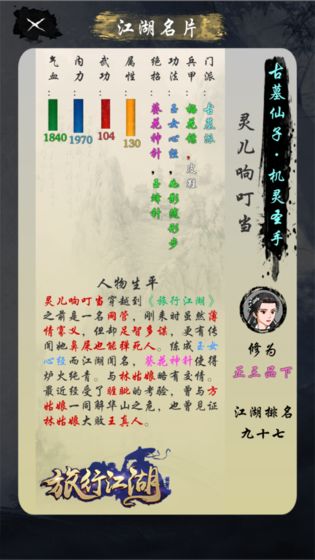 江湖名片
古墓仙子·机灵圣手
灵儿响叮当
门派：古墓派
兵甲：梅花镖，皮鞋
功法：玉女心经，幻影随形步
绝招：葵花神针，玉蜂针
属性：130
武功：104
内力：1970
气血：1840
人物生平
灵儿响叮当穿越到《旅行江湖》
之前是一名网管，刚来时虽然薄
情寡义，但却足智多谋，更有传
闻她鼻屎也能弹死人。练成玉女
心经而江湖闻名，葵花神针使得
炉火纯青。与林姑娘略有交情。
最近经受了的考验，曾与方
姑娘一同解华山之危，也曾见证
林姑娘大败王真人。
修为
正三品下
江湖排名
九十七
旅行江湖